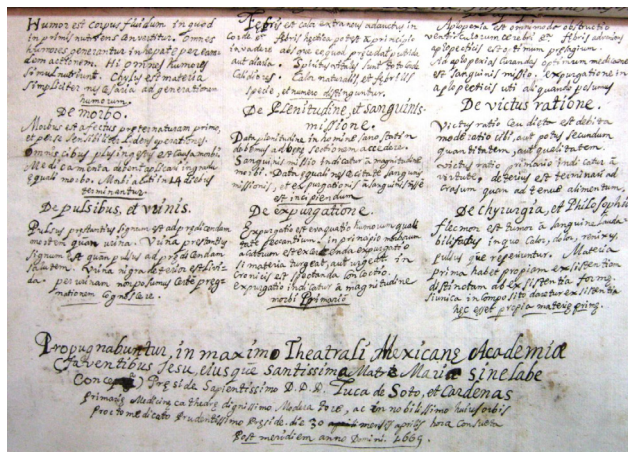 Humor est corpus fluidum in quod
in primis nutriens convertitur. omnes
humores generantur in hepate per eam
dem actionem. Hi primes humores
simul nutriunt. Chylus est materia
simpliciter necesaria ad generationem
humorum.
De morbo.
Morbus est afectus preternaturam primo,
et per se sensibiliter ledens operationes.
omnis cibus plus ingestus est causa morbi
Medicamenta debent aplicari ingra
equali morbo. Mali acidi in 14 diebus
terminantur.
De pulsibus, et urinis.
Pulsus prestantius signum est ad predicendam
mortem quam urina. Urina prestantius
signum est quam pulsus ad predicendam
salutem. Urina nigra deterior est livi
da. per urinam non posumus certe preg
nationem cognoscere.
Febris est calor extraneus aductus in
corde
invadere absque eo quod precedat putrida
aut alaria. Spiritus vitales sunt
calidiores. Calor naturalis et febrilis
specie, et numero distinguntur.
De Plenitudine, et sanguinis
missione.
Data plenitudine in homine, sane statim
debemus ad sectionem accedere.
Sanguinis missio indicatur à magnitudine
morbi. Data equali necesitate sanguinis
missionis, et expurgationis à sanguinis
est incipiendum
De expurgatione.
Expurgatio est evaquatio humorum quali
tate pecantium. in principio morborum
acutorum est exercenda expurgatio
si materia turgeat, aut urgeat. in
cronicis est spectanda concoctio.
expurgatio indicatur à magnitudine
morbi Primario
Apoplexia est omnimoda obstructio
ventriculorum cerebri. Febris adveniens
apoplecticis est optimum presagium.
Ad apoplexias curandas optimum medicamen
est sanguinis missio, expurgatione in
aplopecticis uti aliquando posumus
De victus ratione.
Victus ratio ceu dieta est debita
medicatio cibi, aut potus secundum
quantitatem, aut qualitatem.
victus ratio primario indicatur à
virtute, deterius est terminari ad
crasum quam ad tenue alimentum.
De Chyrurgia, et Philosophia
flecmon est tumor à sanguine
inquo calor, dolor, renixus
pulsus que reperiuntur. Materia
Prima habet propiam existentiam
distinctam ab existentia formę.
in composito dantur existentia
hęc eget propia materię primę.
Propugnabuntur, in maximo Theatrali Mexicanę Academię
faventibus Jesu, eiusque Santissima Matre Maria sine labe
Concepta) Preside Sapientissimo D.D.D. Luca de Soto, et Cardenas
Primarię Medicinę cathedrę dignissimo Moderatore, ac in nobilissimo huius orbis
Proctomedicato Prudentissimo Preside. die 30 mensis aprilis hora consueta
Post meridiem anno Domini. 1669.